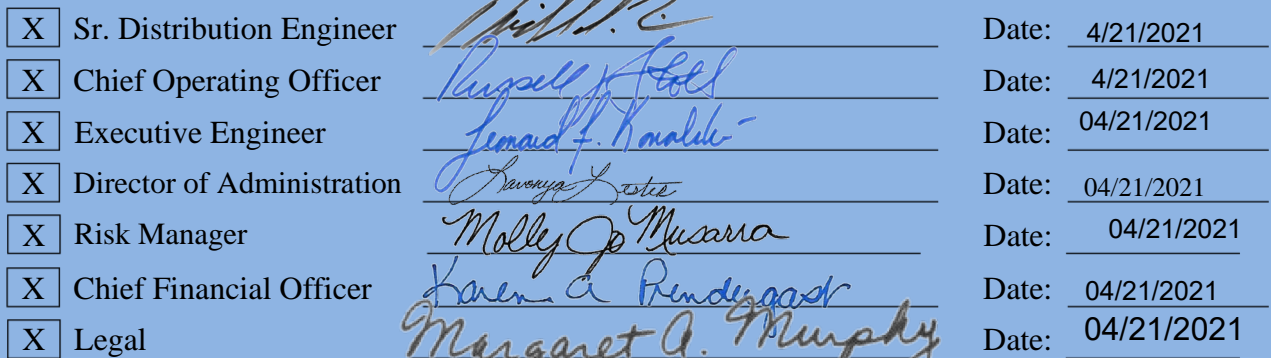 X Sr. Distribution Engineer Date: 4/21/2021
X Chief Operating Officer Russell J Stoll Date: 4/21/2021
X Executive Engineer Leonard F. Kowalski Date: 04/21/2021
X Director of Administration Lavonya Lester Date: 04/21/2021
X Risk Manager Molly Jo Musarra Date: 04/21/2021
X Chief Financial Officer Karen A Prendergast Date: 04/21/2021
X Legal Margaret A. Murphy Date: 04/21/2021